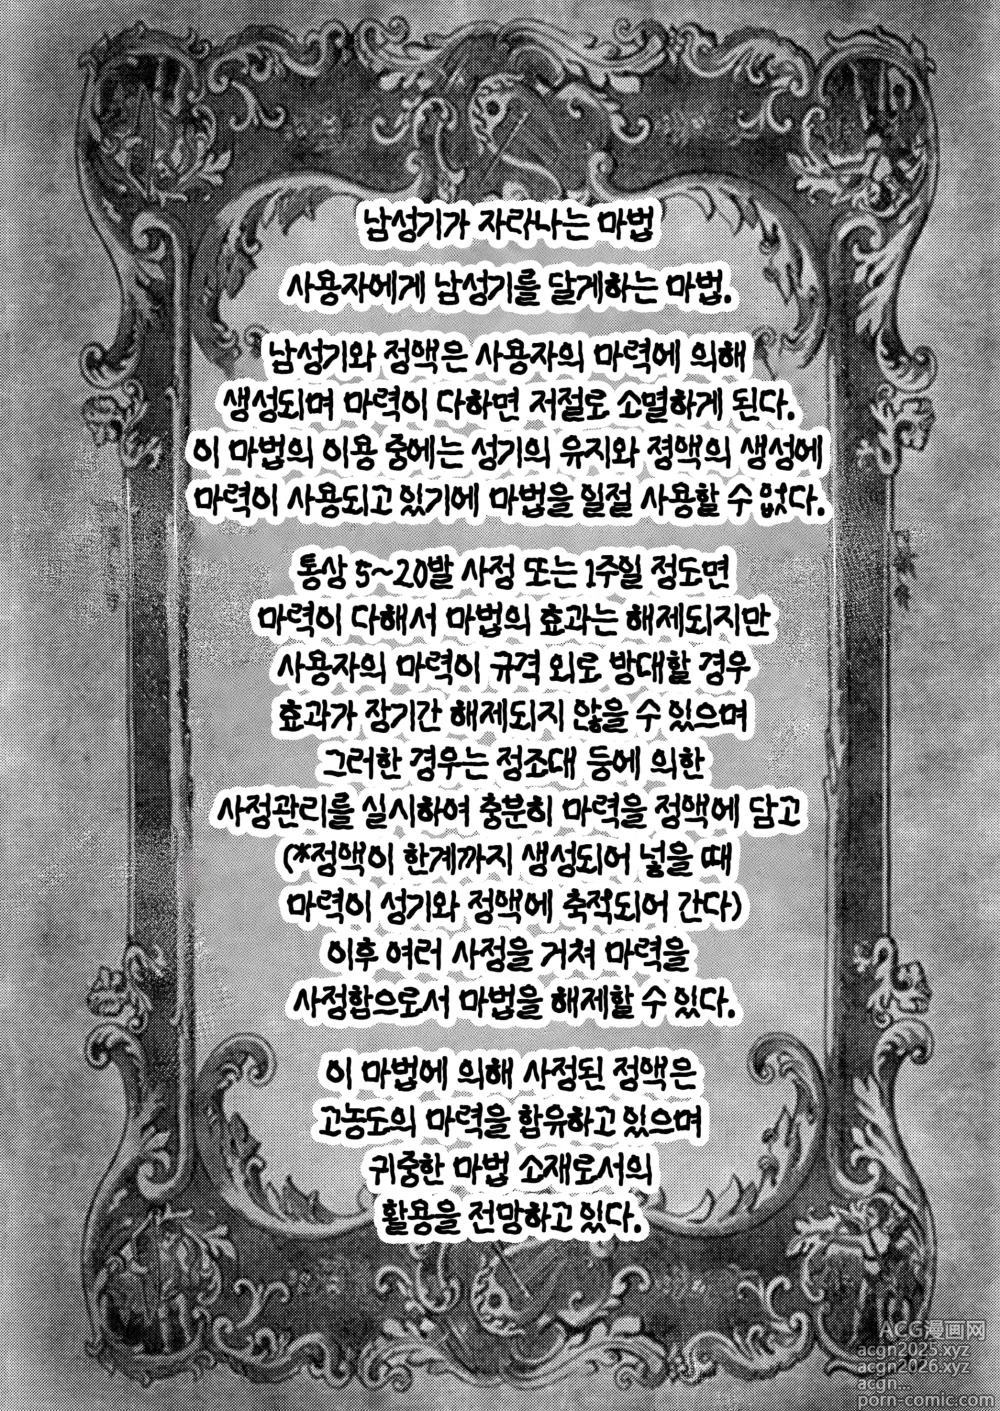 남성기가 자라나는 마법
사용자에게 남성기를 달게하는 마법.
남성기와 정액은 사용자의 마력에 의해
생성되며 마력이 다하면 저절로 소멸하게 된다.
이 마법의 이용 중에는 성기의 유지와 정액의 생성에
마력이 사용되고 있기에 마법을 일절 사용할 수 없다.
통상 5~20발 사정 또는 1주일 정도면
마력이 다해서 마법의 효과는 해제되지만
사용자의 마력이 규격 외로 방대할 경우
효과가 장기간 해제되지 않을 수 있으며
그러한 경우는 정조대 등에 의한
사정관리를 실시하여 충분히 마력을 정액에 담고
(*정액이 한계까지 생성되어 넣을 때
마력이 성기와 정액에 축적되어 간다)
이후 여러 사정을 거쳐 마력을
사정함으로서 마법을 해제할 수 있다.
이 마법에 의해 사정된 정액은
고농도의 마력을 함유하고 있으며
귀중한 마법 소재로서의
활용을 전망하고 있다.
ACG漫画网
acgn2025.xyz
acgn2026.xyz
acgn...
porn-comic.com